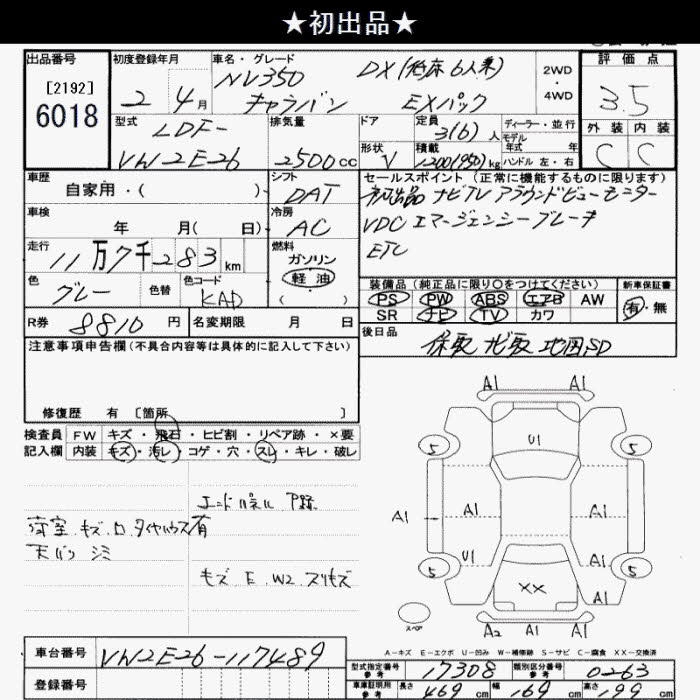 ★初出品★
出品番号 [2192] 6018
初度登録年月 2 4月
車名・グレード NV350 キャラバン DX(低床6人乗) EXパック
2WD・4WD
評価点 3.5
外装 内装
C C
型式 LDF-VW2E26
排気量 2500cc
ドア 形状 V
定員 3(6)人
積載 1200(950)kg
ディーラー・並行
モデル年式 年式
ハンドル 左・右
車歴 自家用・( )
シフト DAT
車検 年 月( 日)
冷房 AC
走行 11万7千283km
燃料 ガソリン 軽油 ( )
色 グレー 色替
色コード KAD
R券 8810円
名変期限 月 日
セールスポイント(正常に機能するものに限ります)
初出品 ナビTV アラウンドビューモニター
VDC エマージェンシーブレーキ
ETC
装備品(純正品に限り○をつけてください) 新車保証書
PS PW ABS エアB AW 有・無
SR ナビ TV カワ
後日品 保取 ナビ取 地図SD
注意事項申告欄(不具合内容等は具体的に記入して下さい)
修復歴 有 〔箇所 〕
検査員 FW キズ・飛石・ヒビ割・リペア跡・×要
記入欄 内装 キズ・汚レ・コゲ・穴・スレ・キレ・破レ
エンドパネル P跡
荷室 キズ ロ タイヤハウス有
天バリ シミ
キズ E W2 スリキズ
A1 A1
5 U1 5
A1 A1 A1
U1 A1
5 XX 5
スペア A2 A1 A1
A-キズ E-エクボ U-凹み W-補修跡 S-サビ C-腐食 XX-交換済
車台番号 VW2E26-117489
登録番号
型式指定番号 参考 17308 類別区分番号 参考 0263
車庫証明用 参考 長さ 469cm 幅 169cm 高さ 199cm